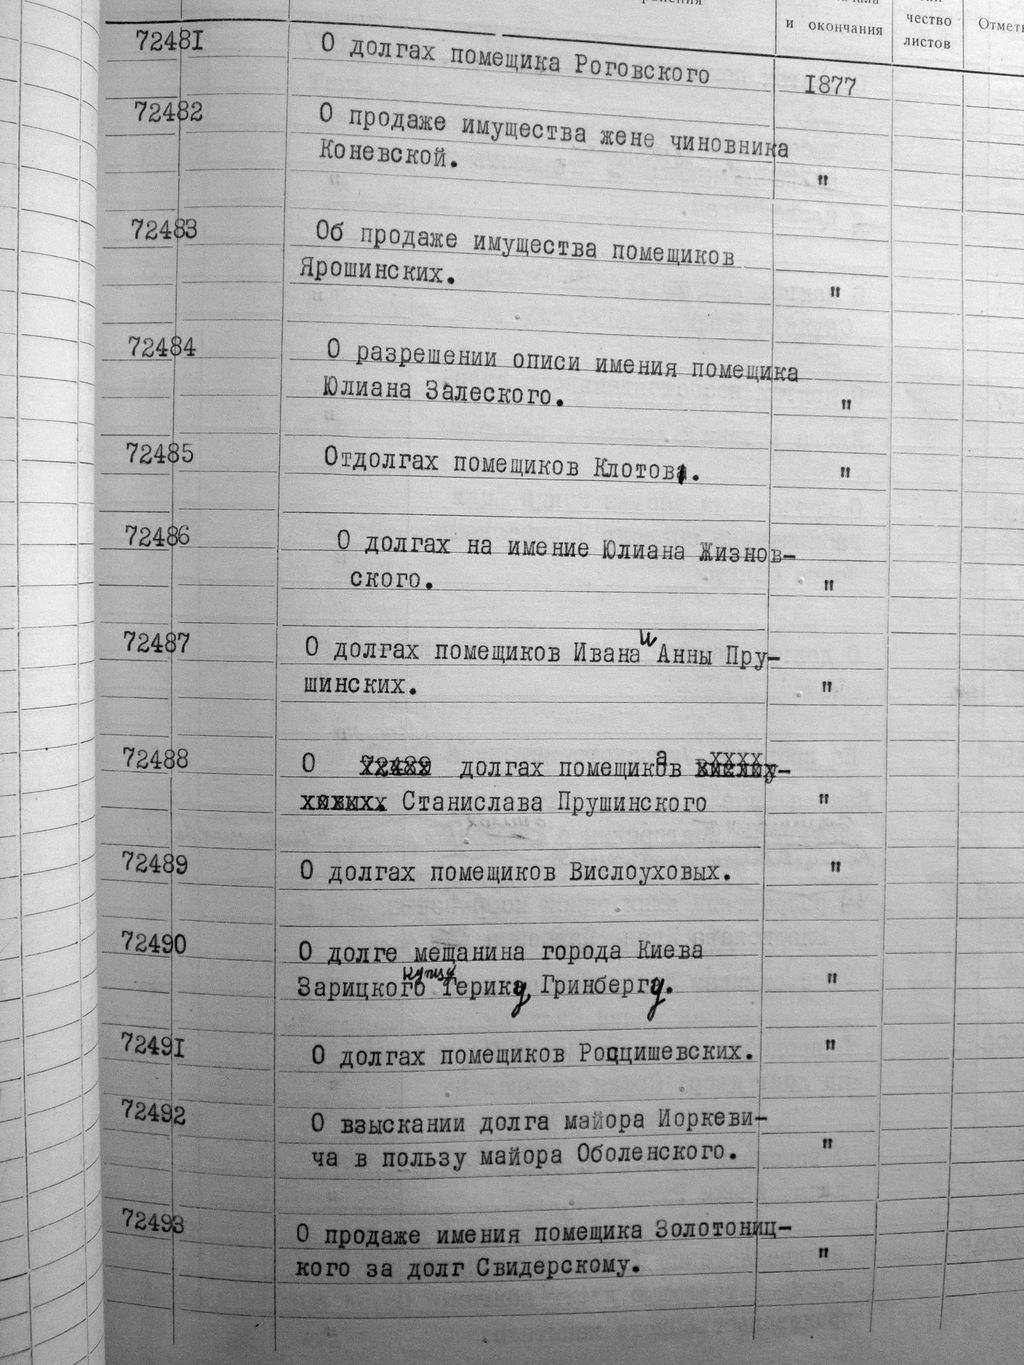 и окончания
чество
листов
72481 О долгах помещика Роговского 1877
72482 О продаже имущества жене чиновника
Коневской. "
72483 Об продаже имущества помещиков
Ярошинских. "
72484 О разрешении описи имения помещика
Юлиана Залеского. "
72485 Отдолгах помещиков Клотова. "
72486 О долгах на имение Юлиана Жизнов-
ского. "
72487 О долгах помещиков Ивана и Анны Пру-
шинских. "
72488 О долгах помещика
Станислава Прушинского "
72489 О долгах помещиков Вислоуховых. "
72490 О долге мещанина города Киева
купцу
Зарицкого Герику Гринбергу. "
72491 О долгах помещиков Росцишевских. "
72492 О взыскании долга майора Иоркеви-
ча в пользу майора Оболенского. "
72493 О продаже имения помещика Золотониц-
кого за долг Свидерскому. "